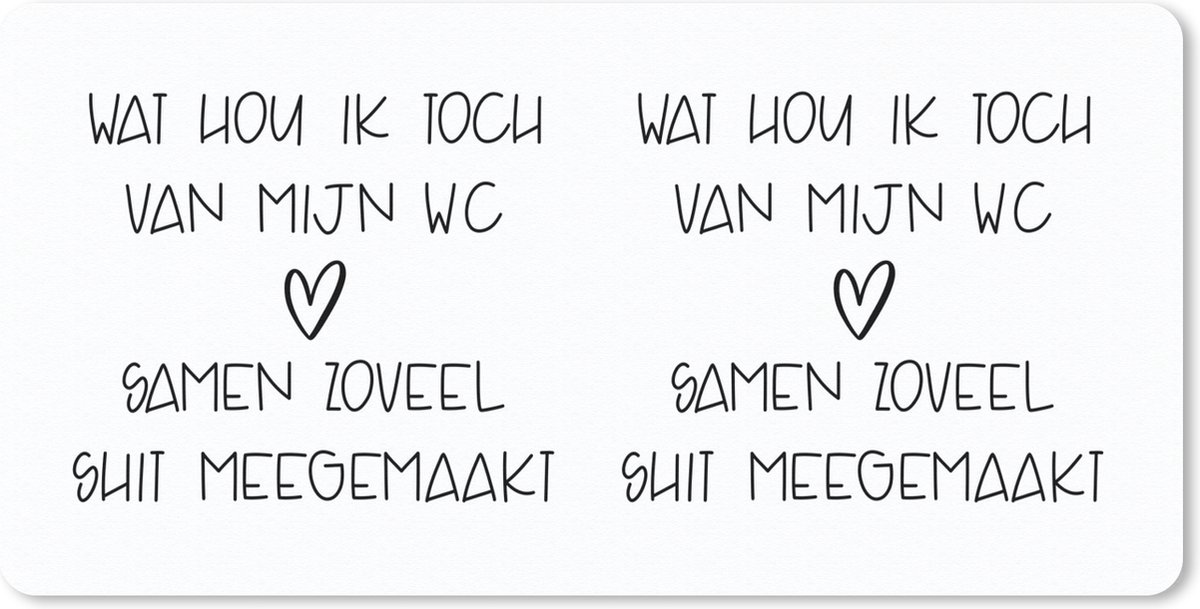 WAT HOU IK TOCH
VAN MIJN WC
SAMEN ZOVEEL
SHIT MEEGEMAAKT
WAT HOU IK TOCH
VAN MIJN WC
SAMEN ZOVEEL
SHIT MEEGEMAAKT